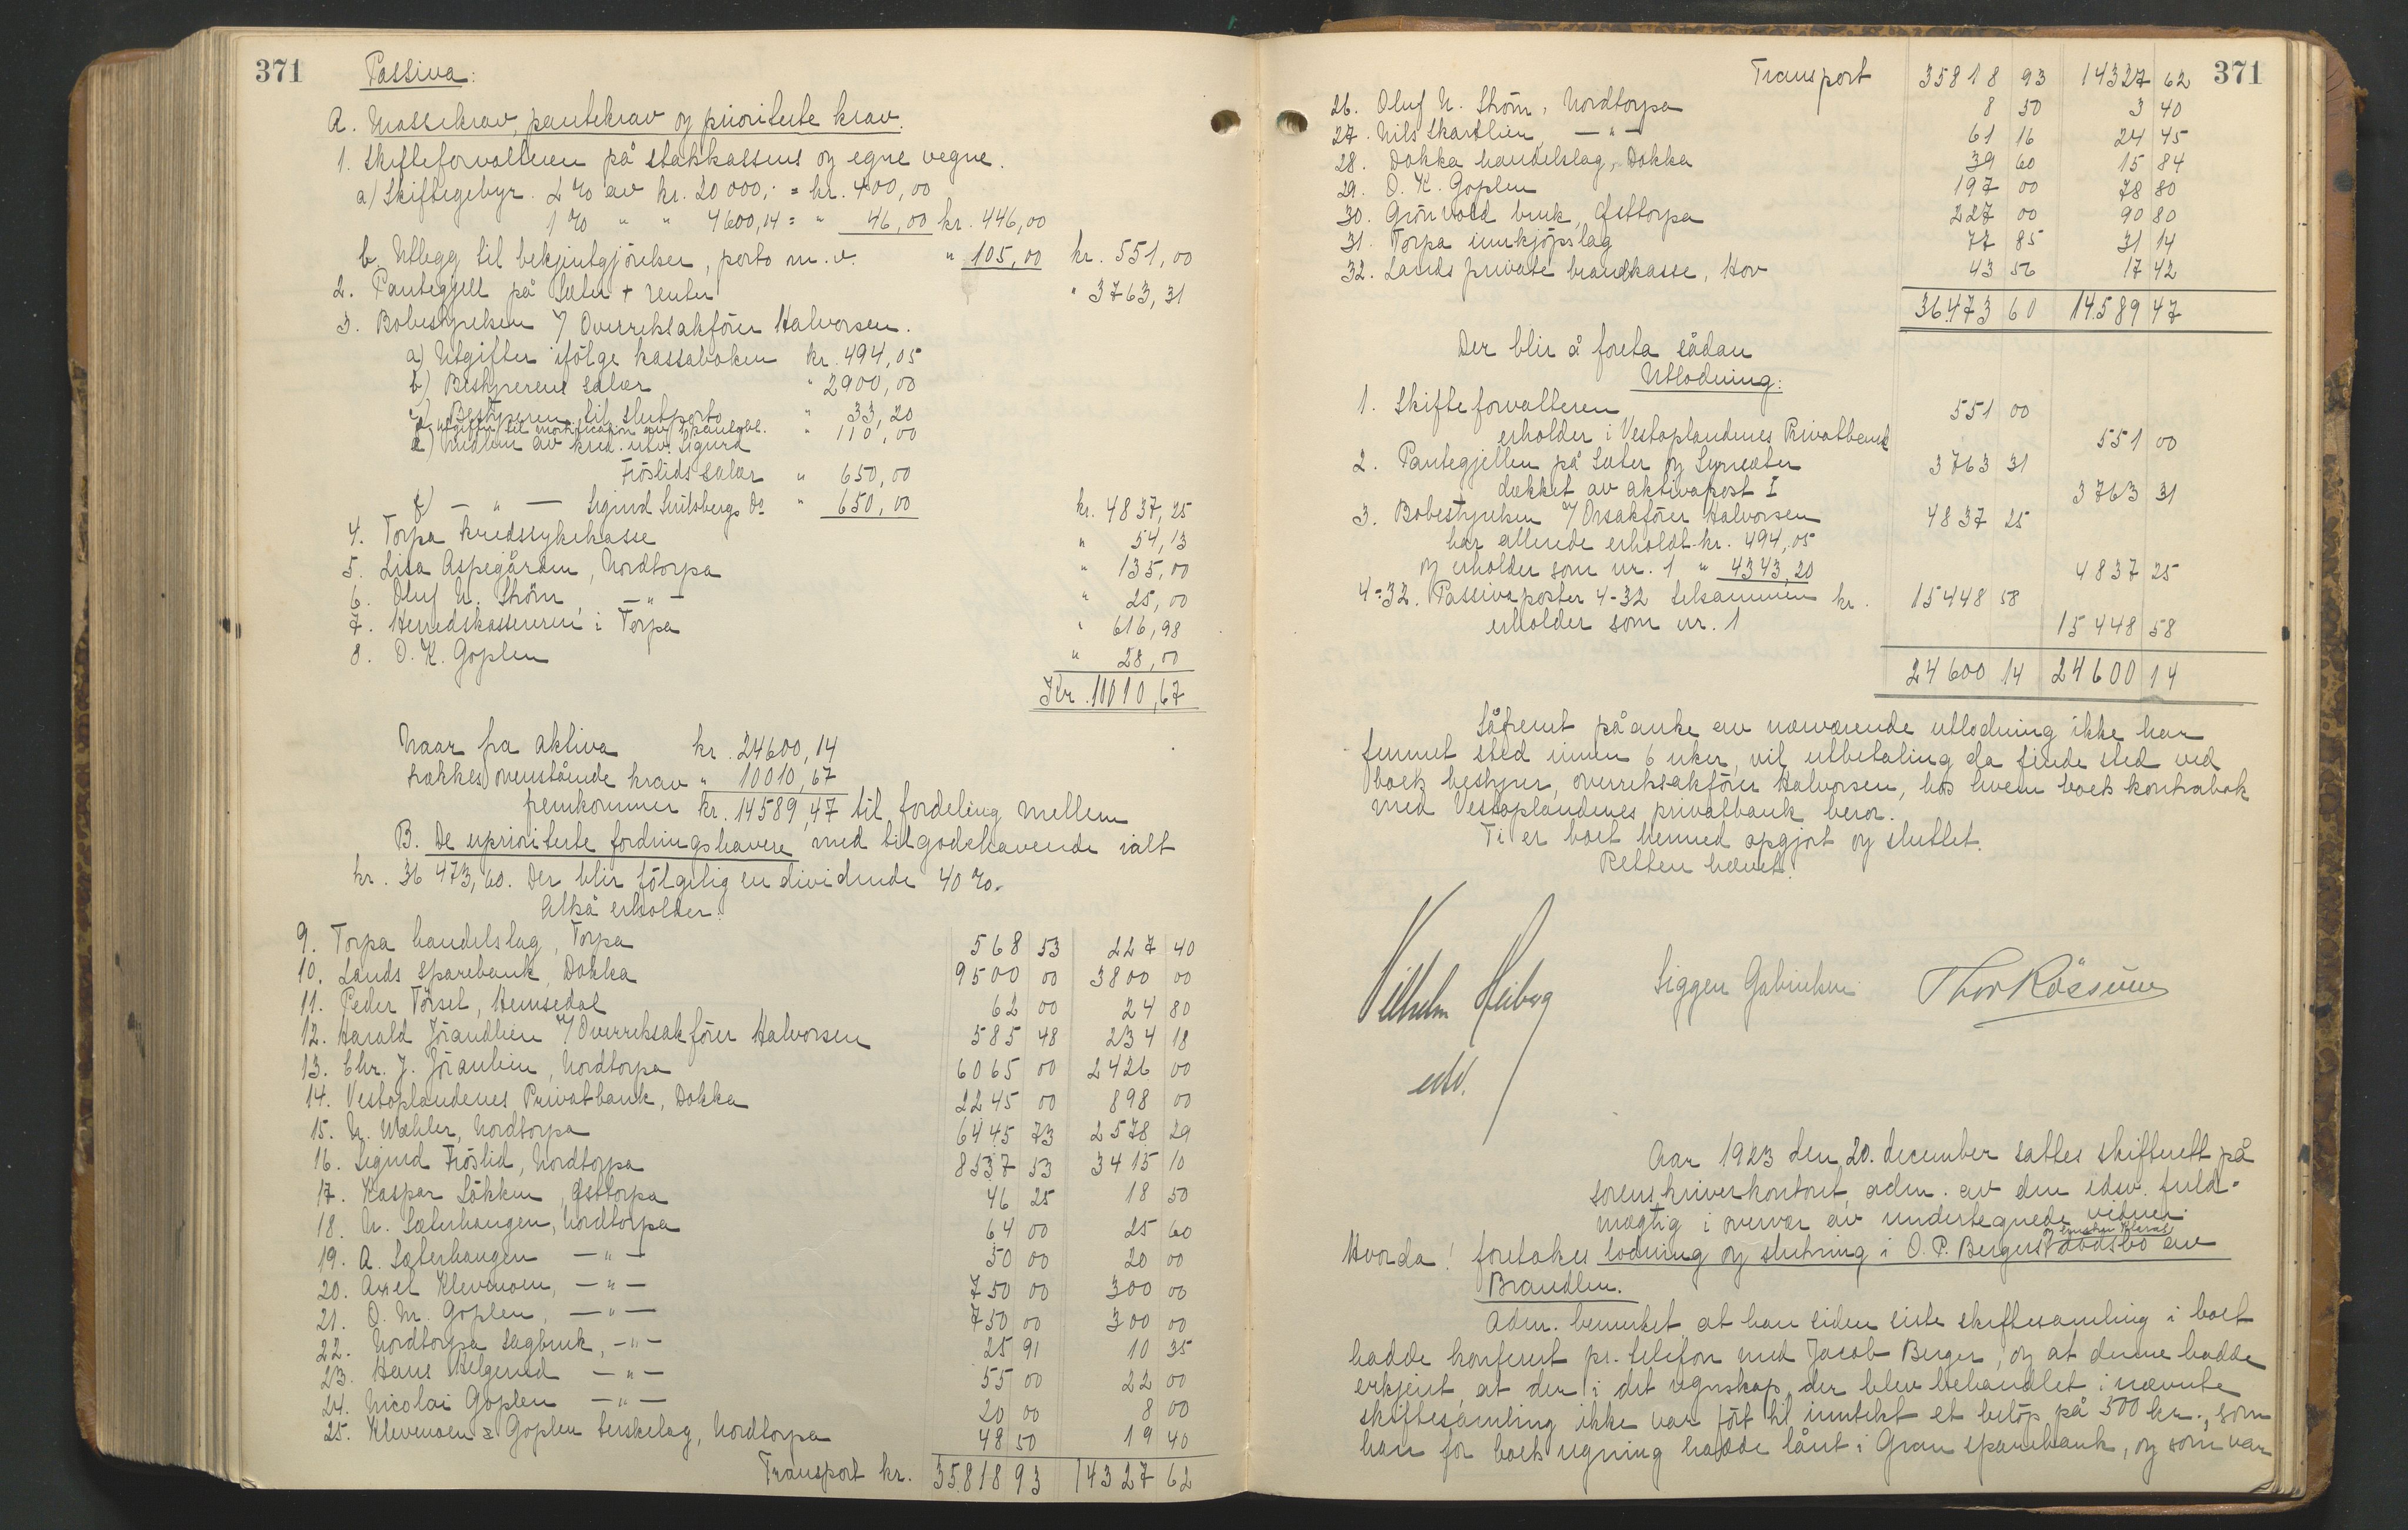 371 Passiva:
A. Massekrav, pantekrav og prioriterte krav.
1. Skifteforvalteren på statskassens og egne vegne.
a) Skiftegebyr. 2 % av kr. 20 000,- = kr. 400,00
1 % " " 4600,14 = " 46,00 kr. 446,00
b. Utlegg til bekjentgjörelser, porto m.v. " 105,00 kr. 551,00
2. Pantegjell på Sæter + renter " 3763,31
3. Bobestyrelsen v/ Overretsakförer Halvorsen.
a) Utgifter ifölge kassaboken kr. 494,05
b) Bestyrerens salær " 2900,00
c) Bestyreren til slutporto " 33,20
d) Utgifter til mortifikation av 1 panteobl. " 110,00
e) Medlem av kred. utv. Sigurd
Fröslids salær " 650,00
f) — " — Sigurd Snilsbergs Do " 650,00 kr. 4837,25
4. Torpa kredssykekasse " 54,13
5. Lisa Aspegården, Nordtorpa " 135,00
6. Oluf N. Ström, — " — " 25,00
7. Herredskassereren i Torpa " 616,98
8. O. K. Goplen " 28,00
Kr. 10010,67
Naar fra aktiva kr. 24600,14
trækkes ovenstående krav " 10010,67
fremkommer kr. 14589,47 til fordeling mellem
B. De uprioriterte fordringshavere med tilgodehavende ialt
kr. 36 473,60. Der blir fölgelig en dividende 40 %.
Altså erholder:
9. Torpa handelslag, Torpa 568 53 227 40
10. Lands Sparebank, Dokka 9500 00 3800 00
11. Peder Törsel, Hemsedal 62 00 24 80
12. Harald Jörandlien v/ Overretsakförer Halvorsen 585 48 234 18
13. Chr. J. Jöranlien, Nordtorpa 6065 00 2426 00
14. Vestoplandenes Privatbank, Dokka 2245 00 898 00
15. N. Mæhler, Nordtorpa 6445 73 2578 29
16. Sigurd Fröslid, Nordtorpa 8537 53 3415 10
17. Kaspar Lökken, Østtorpa 46 25 18 50
18. N. Sæterhaugen, Nordtorpa 64 00 25 60
19. A. Sæterhaugen — " — 50 00 20 00
20. Axel Klevmoen, — " — 750 00 300 00
21. O. M. Goplen, — " — 750 00 300 00
22. Nordtorpa Sagbruk, — " — 25 91 10 35
23. Hans Helgerud — " — 55 00 22 00
24. Nicolai Goplen — " — 20 00 8 00
25. Klevmoen & Goplen terskelag, Nordtorpa 48 50 19 40
Transport kr. 35.818 93 14327 62
Transport 35818 93 14327 62 371
26. Oluf N. Ström, Nordtorpa 8 50 3 40
27. Nils Skartlien — " — 61 16 24 45
28. Dokka handelslag, Dokka 39 60 15 84
29. O. K. Goplen 197 00 78 80
30. Grönvold bruk, Østtorpa 227 00 90 80
31. Torpa innkjöpslag 77 85 31 14
32. Lands private brandkasse, Hov 43 56 17 42
36.473 60 14.589 47
Der blir å foreta sådan
Utlodning:
1. Skifteforvalteren 551 00
erholder i Vestoplandenes Privatbank 551 00
2. Pantegjellen på Sæter og 3763 31
dækket av aktivapost I 3763 31
3. Bobestyrelsen v/ Orsakförer Halvorsen 4837 25
har allerede erholdt kr. 494,05
og erholder som nr. 1 " 4343,20 4837 25
4-32. Passivaposter 4-32 tilsammen kr. 15448 58
erholder som nr. 1 15448 58
24600 14 24600 14
Såfremt påanke av nærværende utlodning ikke har
funnet sted innen 6 uker, vil utbetaling da finde sted ved
boets bestyrer, overretsakförer Halvorsen, hos hvem boets kontrabok
med Vestoplandenes privatbank beror.
Ti er boet hermed opgjort og sluttet.
Retten hævet.
Vilhelm Heiberg Siggen Gabrielsen Thor Røssum
edsv.
Aar 1923 den 20. december sattes skifterett på
sorenskriverkontoret, adm. av den edsv. fuld-
mægtig i overvær av undertegnede vidner.
Hvorda! foretokes lodning og slutning i O. P. Bergers dödsbo av
Brandlien.
Adm. bemerket at han siden siste skiftesamling i boet
hadde konferert pr. telefon med Jacob Berger, og at denne hadde
erkjent, at der i det regnskap, der blev behandlet i nævnte
skiftesamling ikke var fört til inntekt et belöp på 500 kr., som
han for boets regning hadde lånt i Gran sparebank, og som var